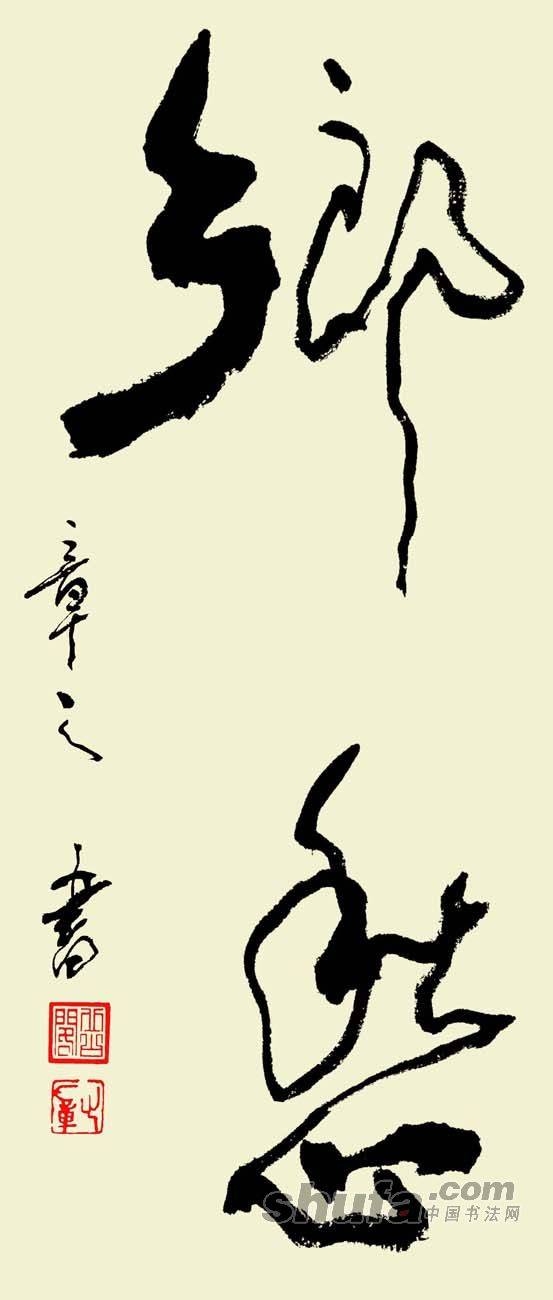 鄉愁
章之書
章之
shufa.com
中国书法网